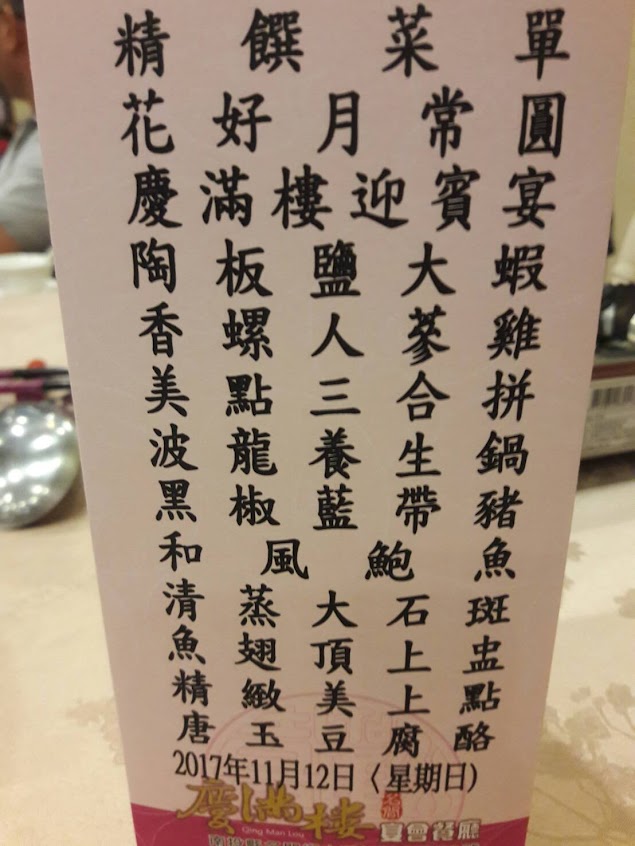 精饌菜單
花好月常圓
慶滿樓迎賓宴
陶板鹽大蝦
香螺人蔘雞
美點三合拼
波龍養生鍋
黑椒藍帶豬
和風鮑魚
清蒸大石斑
魚翅頂上盅
精緻美上點
唐玉豆腐酪
2017年11月12日〈星期日〉
慶滿樓 宴會餐廳
Qing Man Lou